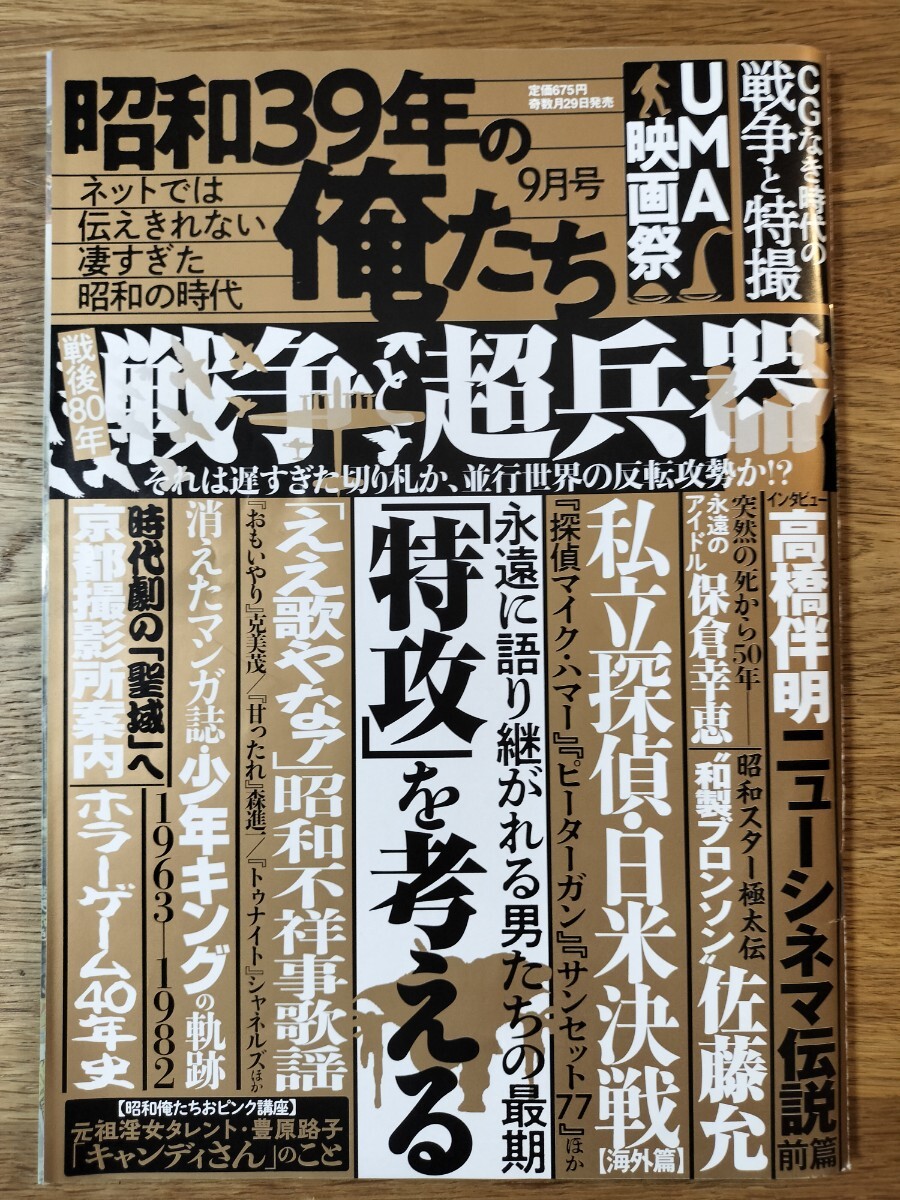 昭和39年の
俺たち
9月号
定価675円
奇数月29日発売
ネットでは
伝えきれない
凄すぎた
昭和の時代
CGなき時代の
戦争と特撮
UMA
映画祭
戦後80年
戦争と超兵器
それは遅すぎた切り札か、並行世界の反転攻勢か!?
インタビュー
高橋伴明
ニューシネマ伝説
前篇
突然の死から50年――
永遠の
アイドル
保倉幸恵
昭和スター極太伝
“和製ブロンソン”佐藤允
私立探偵・日米決戦
【海外篇】
『探偵マイク・ハマー』『ピーターガン』『サンセット77』ほか
永遠に語り継がれる男たちの最期
「特攻」を考える
「ええ歌やなァ」昭和不祥事歌謡
『おもいやり』克美茂/『甘ったれ』森進一/『トゥナイト』シャネルズほか
消えたマンガ誌・少年キングの軌跡
1963―1982
時代劇の「聖域」へ
京都撮影所案内
ホラーゲーム40年史
【昭和俺たちおピンク講座】
元祖淫女タレント・豊原路子
「キャンディさん」のこと